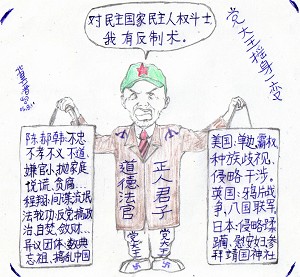 对民主国家民主人权斗士
我有反制术。
党大王摇身一变
陈、郝、韩:不忠
不孝不义不道、
嫌官小、抛家庭
悦谎、贪腐。
程翔:间谍流氓
法轮功:反党搞政
治、自焚、敛财、
异议团体:数典
忘祖、搞乱中国
道德法官
正人君子
党大王
党大王
美国:单边、霸权、
种族歧视、
侵略干涉。
英国:鸦片战
争、八国联军。
日本:侵略蹂
躏、慰安妇参
拜靖国神社